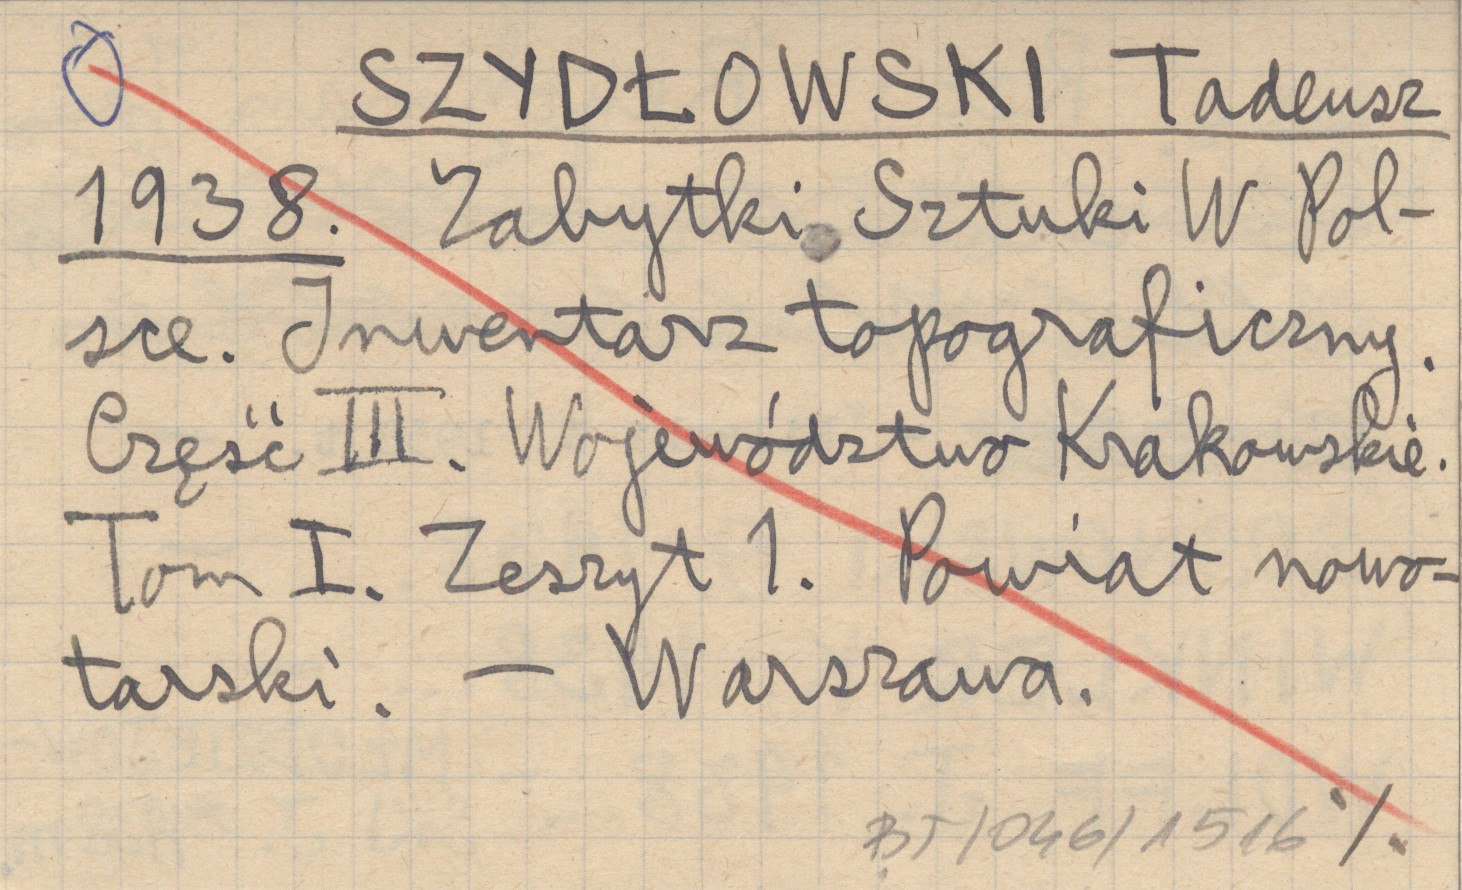 SZYDŁOWSKI Tadeusz
1938. Zabytki Sztuki W Pol-
sce. Inwentarz topograficzny.
Część III. Województwo Krakowskie.
Tom I. Zeszyt 1. Powiat nowo-
tarski. — Warszawa.
BT/046/1516 ·/.